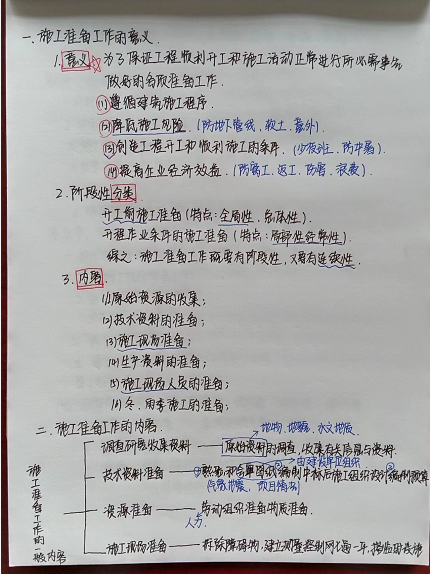 一、施工准备工作的意义
1.意义☆:为了保证工程顺利开工和施工活动正常进行所必需事先
做好的各项准备工作.
(1)遵循建筑施工程序.
(2)降低施工风险.(防地下管线、软土、意外)
(3)创造工程开工和顺利施工的条件.
(4)提高企业经济效益.(防窝工、返工、浪费)
2.阶段性分类
开工前施工准备(特点:全局性、总体性).
作业条件的施工准备(特点:局部性经常性).
综之:施工准备工作既要有阶段性,又要有连续性.
3.内容
(1)原始资源的收集;
(2)技术资料的准备;
(3)施工现场准备;
(4)生产资料的准备;
(5)施工现场人员的准备;
(6)冬、雨季施工的准备;
二、施工准备工作的内容.
地形、地貌、水文地质
调查研究收集资料——原始资料的调查、收集有关信息与资料
由建设单位组织
技术资料准备
资源准备——劳动组织准备物质准备.
人力
施工现场准备——拆除障碍物,建立测量控制网
施工准备工作的一般内容